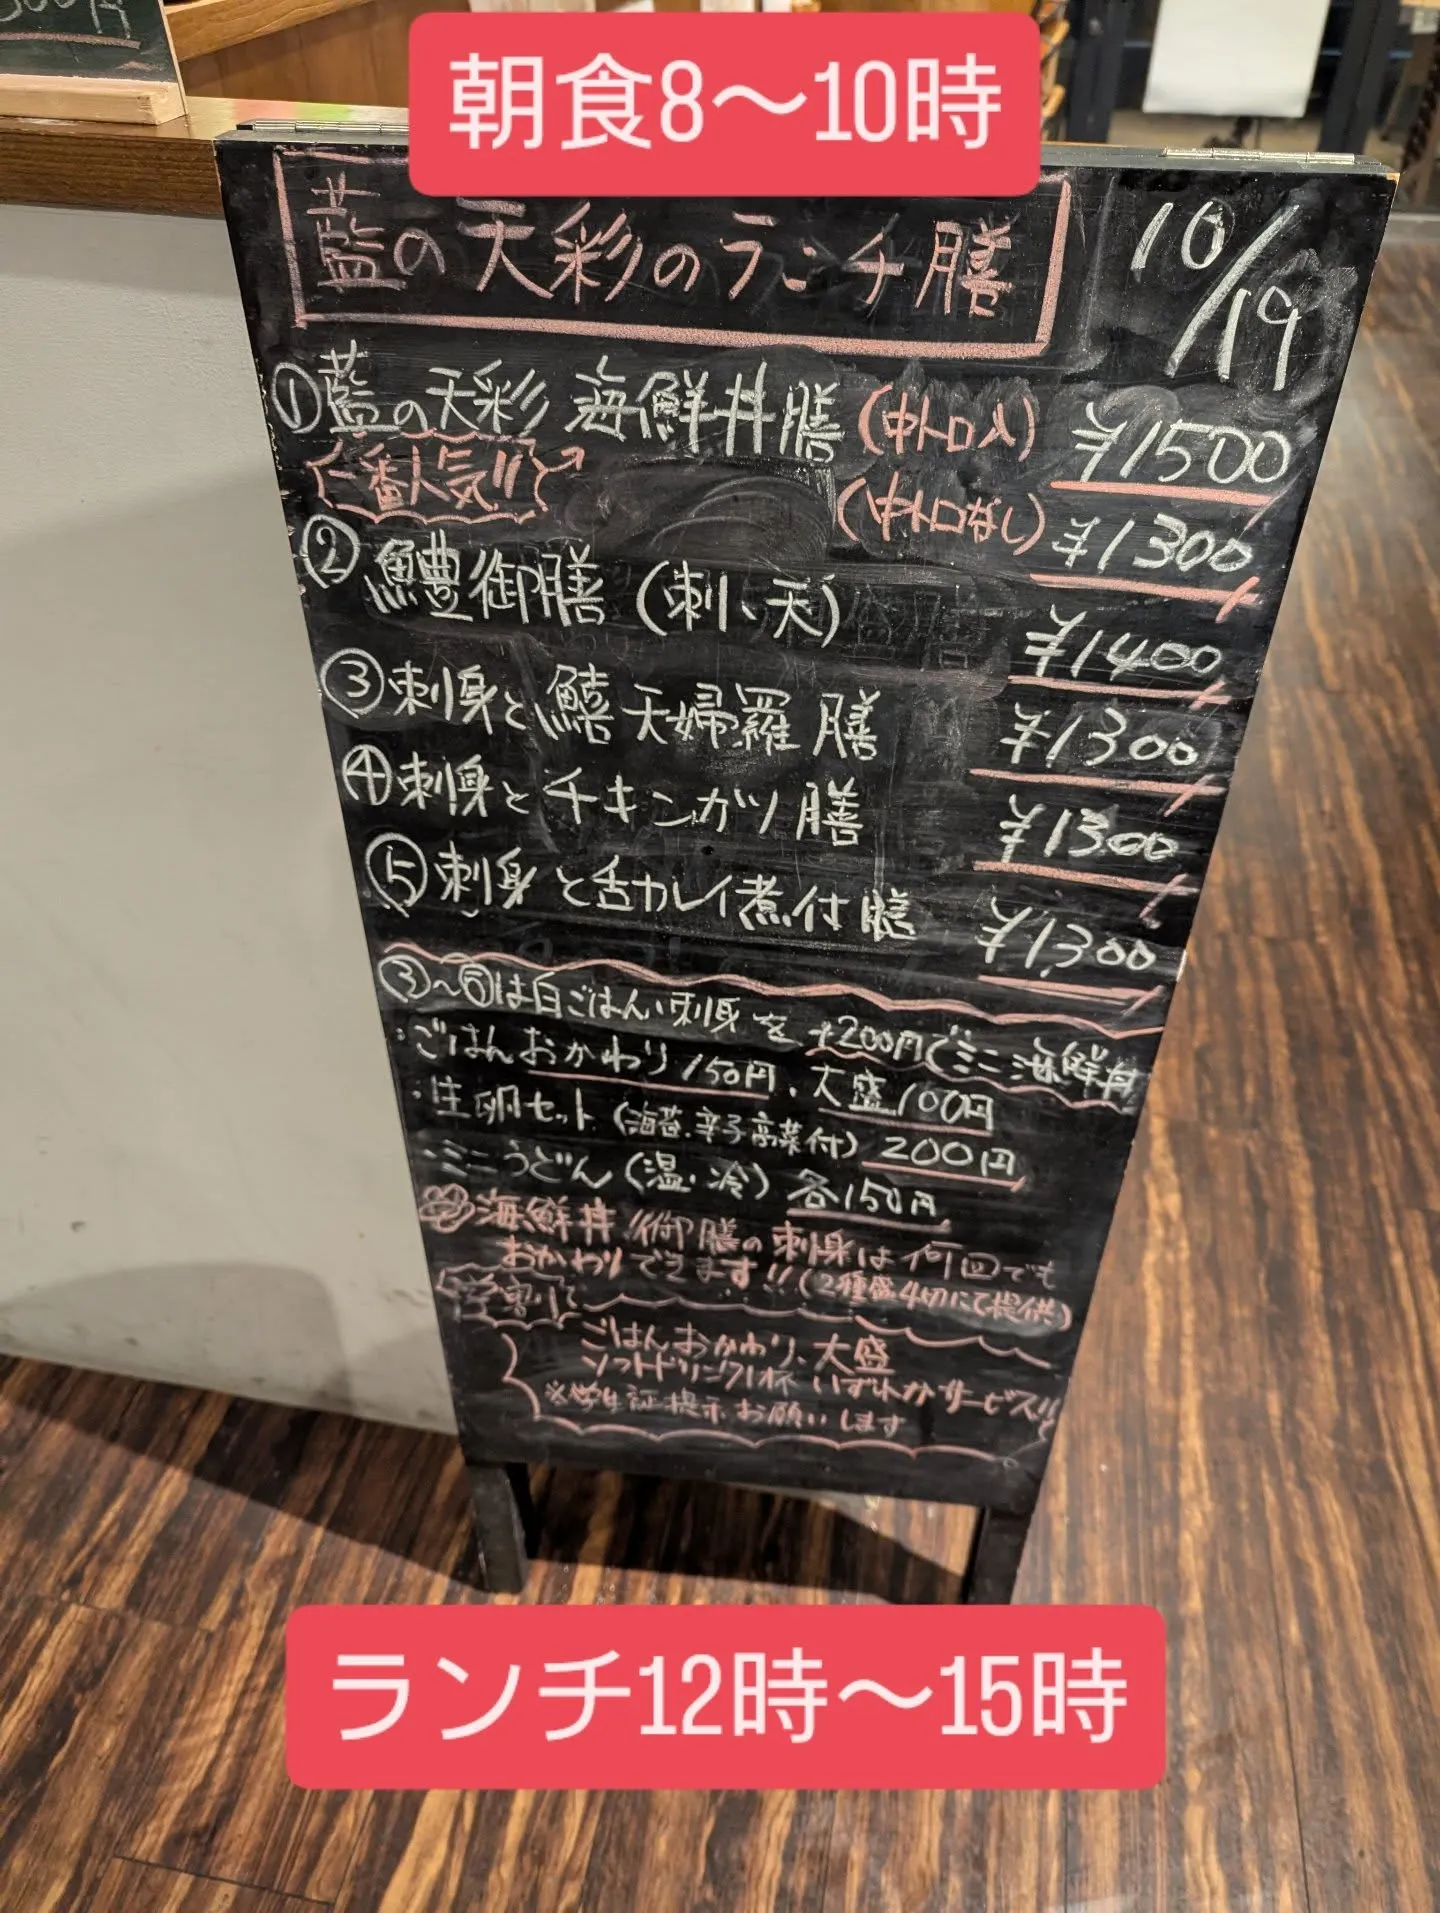 朝食8〜10時
藍の天彩のランチ膳
10/19
①藍の天彩 海鮮丼膳(中トロ入) ¥1500
一番人気!!
(中トロなし) ¥1300
②鱧御膳(刺、天) ¥1400
③刺身と鱚天婦羅膳 ¥1300
④刺身とチキンカツ膳 ¥1300
⑤刺身と舌カレイ煮付膳 ¥1300
③〜⑤は白ごはん、刺身を+200円でミニ海鮮丼
・ごはんおかわり150円、大盛100円
・生卵セット(海苔、辛子高菜付)200円
・ミニうどん(温・冷)各150円
海鮮丼、御膳の刺身は何回でも
おかわりできます!!(2種盛4切にて提供)
学割
ごはんおかわり、大盛
ソフトドリンク1杯 いずれかサービス!!
※学生証提示お願いします
ランチ12時〜15時